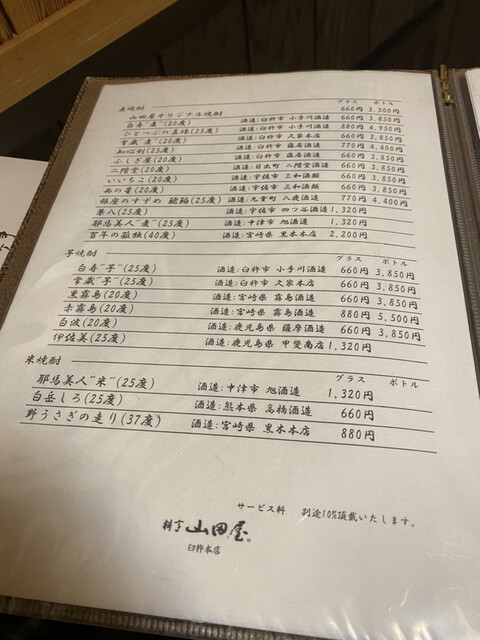 麦焼酎 グラス ボトル
山田屋オリジナル焼酎 660円 3,300円
白寿"麦"(20度) 酒造:臼杵市 小手川酒造 660円 3,850円
ひとつぶの真珠(25度) 酒造:臼杵市 小手川酒造 880円 4,950円
常蔵"麦"(20度) 酒造:臼杵市 久家本店 660円 3,850円
知心剣(25度) 酒造:臼杵市 藤居酒造 770円 4,400円
ふしぎ屋(20度) 酒造:臼杵市 藤居酒造 660円 3,850円
二階堂(20度) 酒造:日出町 二階堂酒造 660円 3,850円
いいちこ(20度) 酒造:宇佐市 三和酒類 660円 3,850円
西の星(20度) 酒造:宇佐市 三和酒類 660円 3,850円
銀座のすずめ 琥珀(25度) 酒造:九重町 八鹿酒造 770円 4,400円
兼八(25度) 酒造:宇佐市 四ツ谷酒造 1,320円
耶馬美人"麦"(25度) 酒造:中津市 旭酒造 1,320円
百年の孤独(40度) 酒造:宮崎県 黒木本店 2,200円
芋焼酎 グラス ボトル
白寿"芋"(25度) 酒造:臼杵市 小手川酒造 660円 3,850円
常蔵"芋"(25度) 酒造:臼杵市 久家本店 660円 3,850円
黒霧島(20度) 酒造:宮崎県 霧島酒造 660円 3,850円
赤霧島(20度) 酒造:宮崎県 霧島酒造 880円 5,500円
白波(20度) 酒造:鹿児島県 薩摩酒造 660円 3,850円
伊佐美(25度) 酒造:鹿児島県 甲斐商店 1,320円
米焼酎 グラス ボトル
耶馬美人"米"(25度) 酒造:中津市 旭酒造 1,320円
白岳しろ(25度) 酒造:熊本県 高橋酒造 660円
野うさぎの走り(37度) 酒造:宮崎県 黒木本店 880円
サービス料 別途10%頂戴いたします。
料亭 山田屋
臼杵本店